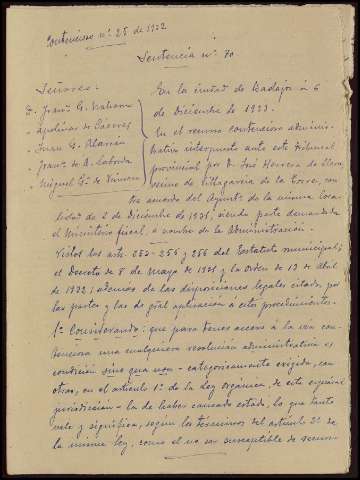 Contencioso nº 25 de 1922
Sentencia nº 70
Señores.
D. Juan G.
" Apolinar de Cáceres
" Juan G. Alarcón
" Franco de A. Laborda
" Miguel Gª de
En la ciudad de Badajoz á 6
de Diciembre de 1923.
En el recurso contencioso adminis-
trativo interpuesto ante este Tribunal
provincial por D. José Herrera de
de Villagarcía de la Torre, con-
tra acuerdo del Ayuntº de la misma loca-
lidad de 2 de Diciembre de siendo parte demandada
el Ministerio fiscal, á nombre de la Administración.
Vistos los arts. 253 - 255 y 256 del Estatuto municipal;
el Decreto de 8 de Mayo de y la Orden de 13 de Abril
de además de las disposiciones legales citadas por
las partes y las de gral aplicación á estos procedimientos.
1º Considerando: que para tener acceso á la vía con-
tenciosa una cualquiera resolución administrativa es
condición sine qua non - categóricamente exigida, con
otras, en el artículo 1º de la Ley orgánica de esta especial
jurisdicción - la de haber causado estado, lo que tanto
vale y significa, según los términos del artículo 2º de
la misma ley, como el no ser susceptible de recurso